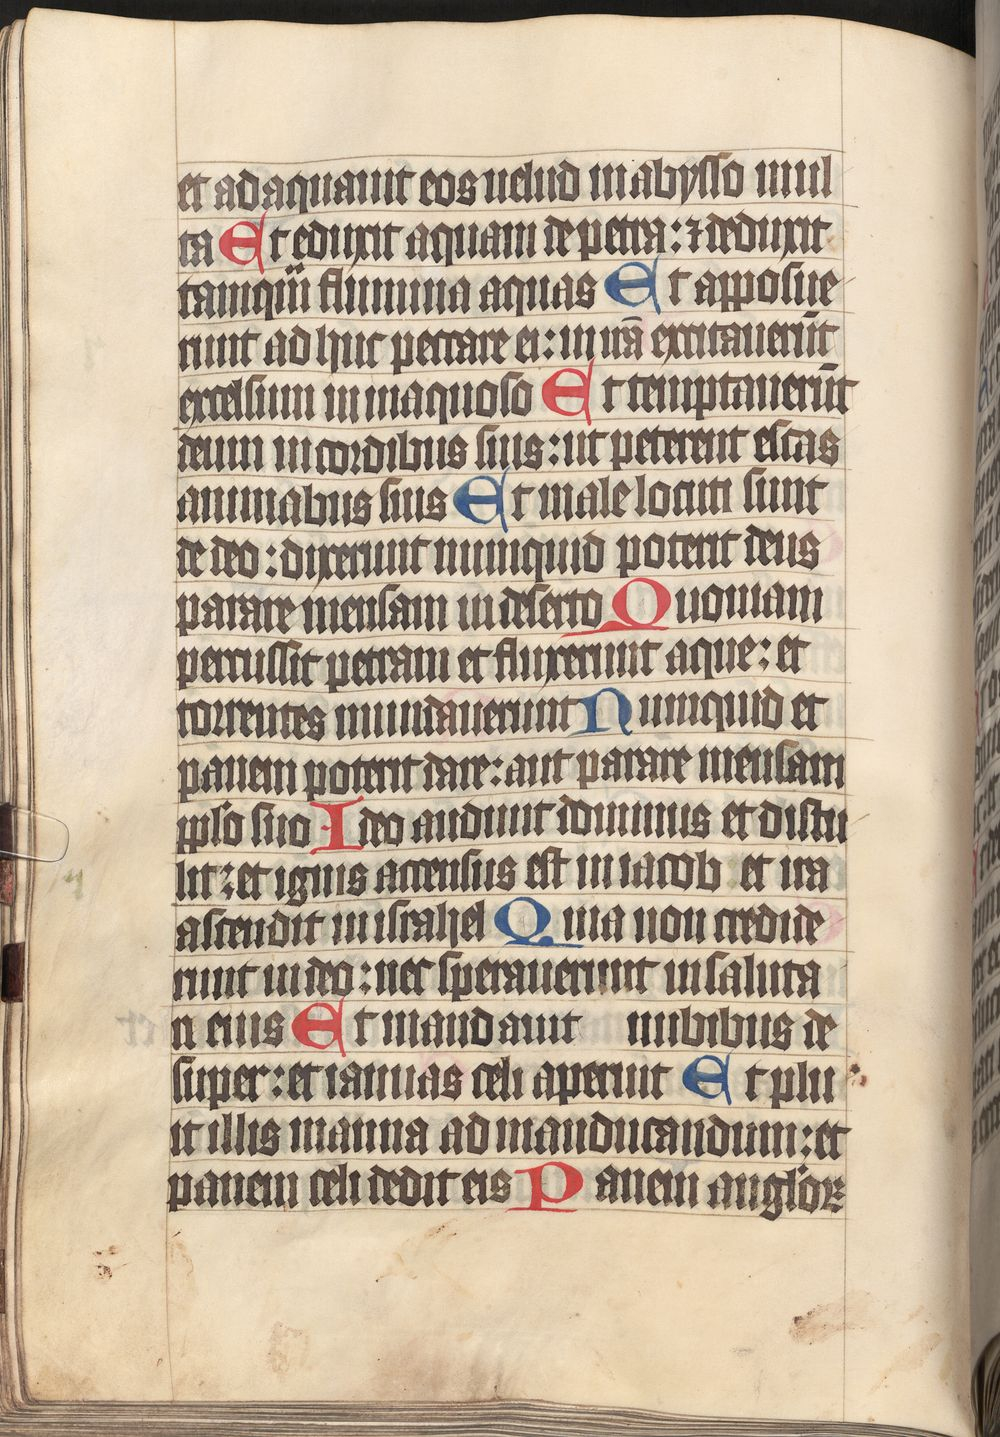 et adaquauit eos uelud in abysso mul
ta Et eduxit aquam de petra: ⁊ deduxit
tamqū flumina aquas Et apposue
runt ad huc peccare ei: in irā excitauerūt
excelsum in inaquoso Et temptauerūt
deum in cordibus suis: ut peterent escas
animabus suis Et male locuti sunt
de deo: dixerunt numquid poterit deus
parare mensam in deserto Quoniam
percussit petram et fluxerunt aque: et
torrentes inundauerunt Numquid et
panem poterit dare: aut parare mensam
pplo suo Ideo audiuit dominus et distu
lit: et ignis accensus est in iacob et ira
ascendit in israhel Quia non credide
runt in deo: nec sperauerunt in saluta
ri eius Et mandauit nubibus de
super: et ianuas celi aperuit Et plu
it illis manna ad manducandum: et
panem celi dedit eis Panem anglorꝝ